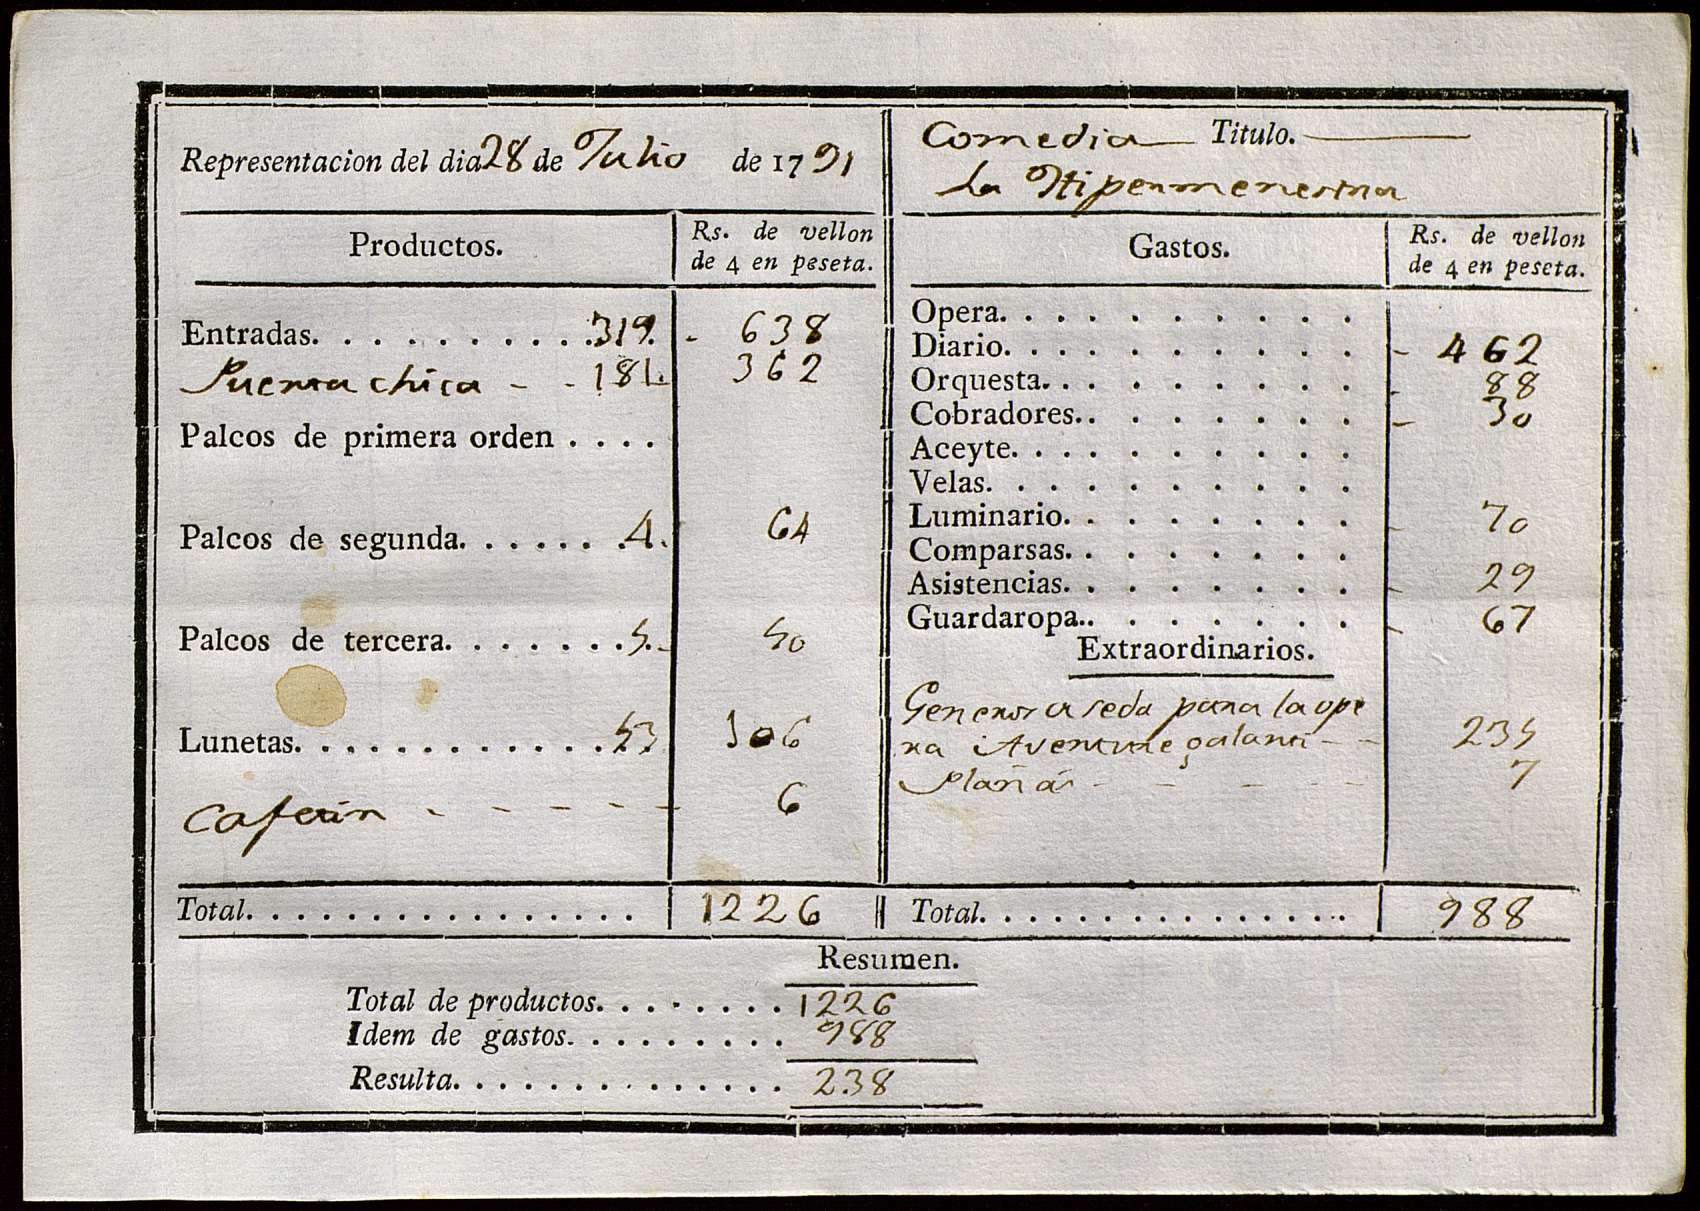 Representacion del dia 28 de Julio de 1791
Comedia Titulo.
La Hipermenestra
Productos. Rs. de vellon
de 4 en peseta.
Entradas. . . . . . . . . . . 319. - 638
Puerta chica - - 181. 362
Palcos de primera orden . . . .
Palcos de segunda. . . . . . . 4. 64
Palcos de tercera. . . . . . . . 5. 50
Lunetas. . . . . . . . . . . . . 53 106
Cafetin - - - - - 6
Total. . . . . . . . . . . . . . . . . 1226
Gastos. Rs. de vellon
de 4 en peseta.
Opera. . . . . . . . . . .
Diario. . . . . . . . . . . - 462
Orquesta. . . . . . . . . . 88
Cobradores. . . . . . . . - 30
Aceyte. . . . . . . . . . .
Velas. . . . . . . . . . .
Luminario. . . . . . . . - 70
Comparsas. . . . . . . .
Asistencias. . . . . . . . - 29
Guardaropa. . . . . . . . - 67
Extraordinarios.
Generos a seda para la ope
ra Aventure galanti - - 235
- - - - - 7
Total. . . . . . . . . . . . . . . . 988
Resumen.
Total de productos. . . . . . . . 1226
Idem de gastos. . . . . . . . . 988
Resulta. . . . . . . . . . . . . . 238